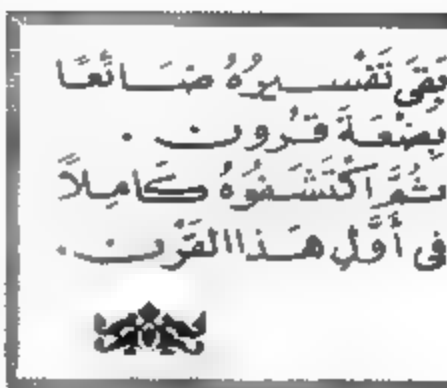 بَقِيَ تَفْسِيرُهُ ضَائِعًا
بِضْعَةَ قُرُونٍ .
ثُمَّ اكْتَشَفُوهُ كَامِلاً
فى أَوَّلِ هَذا القَرْنِ.